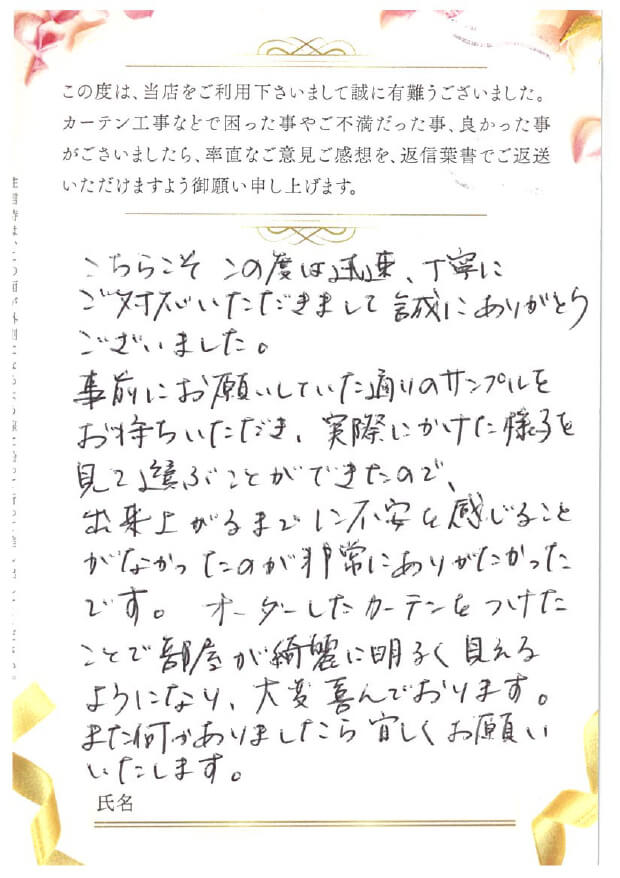 この度は、当店をご利用下さいまして誠に有難うございました。
カーテン工事などで困った事やご不満だった事、良かった事
がございましたら、率直なご意見ご感想を、返信葉書でご返送
いただけますよう御願い申し上げます。
こちらこそ この度は迅速、丁寧に
ご対応いただきまして誠にありがとう
ございました。
事前にお願いしていた通りのサンプルを
お持ちいただき、実際にかけた様子を
見て選ぶことができたので、
出来上がるまでに不安を感じること
がなかったのが非常にありがたかった
です。 オーダーしたカーテンをつけた
ことで部屋が綺麗に明るく見える
ようになり、大変喜んでおります。
また何かありましたら宜しくお願い
いたします。
氏名